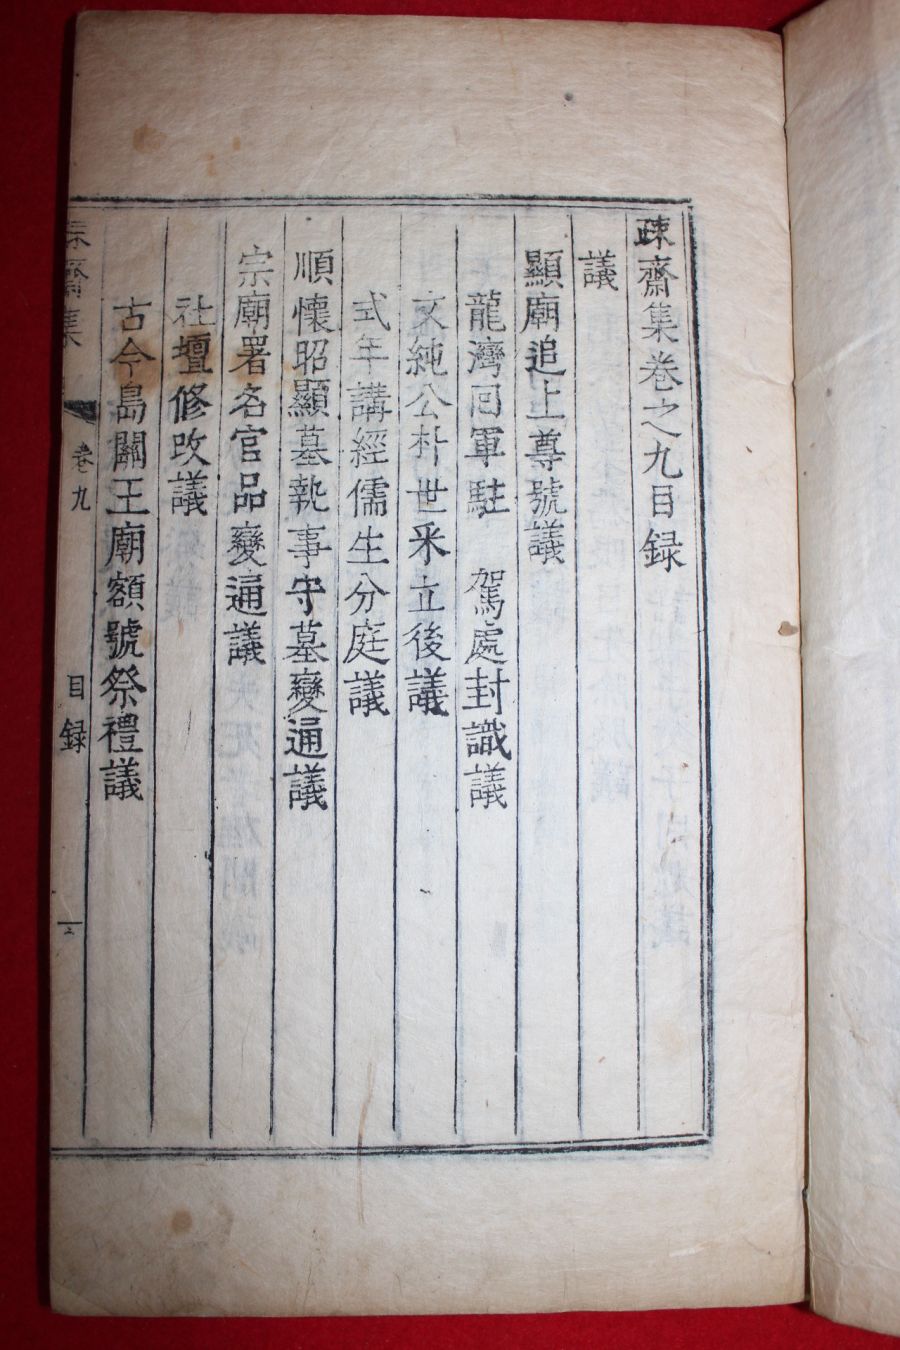 疎齋集卷之九目録
議
顯廟追上尊號議
龍灣回軍駐 駕處封識議
文純公朴世采立後議
式年講經儒生分庭議
順懷昭顯墓執事守墓變通議
宗廟署名官品變通議
社壇修改議
古今島關王廟額號祭禮議
疎齋集 卷九 目録